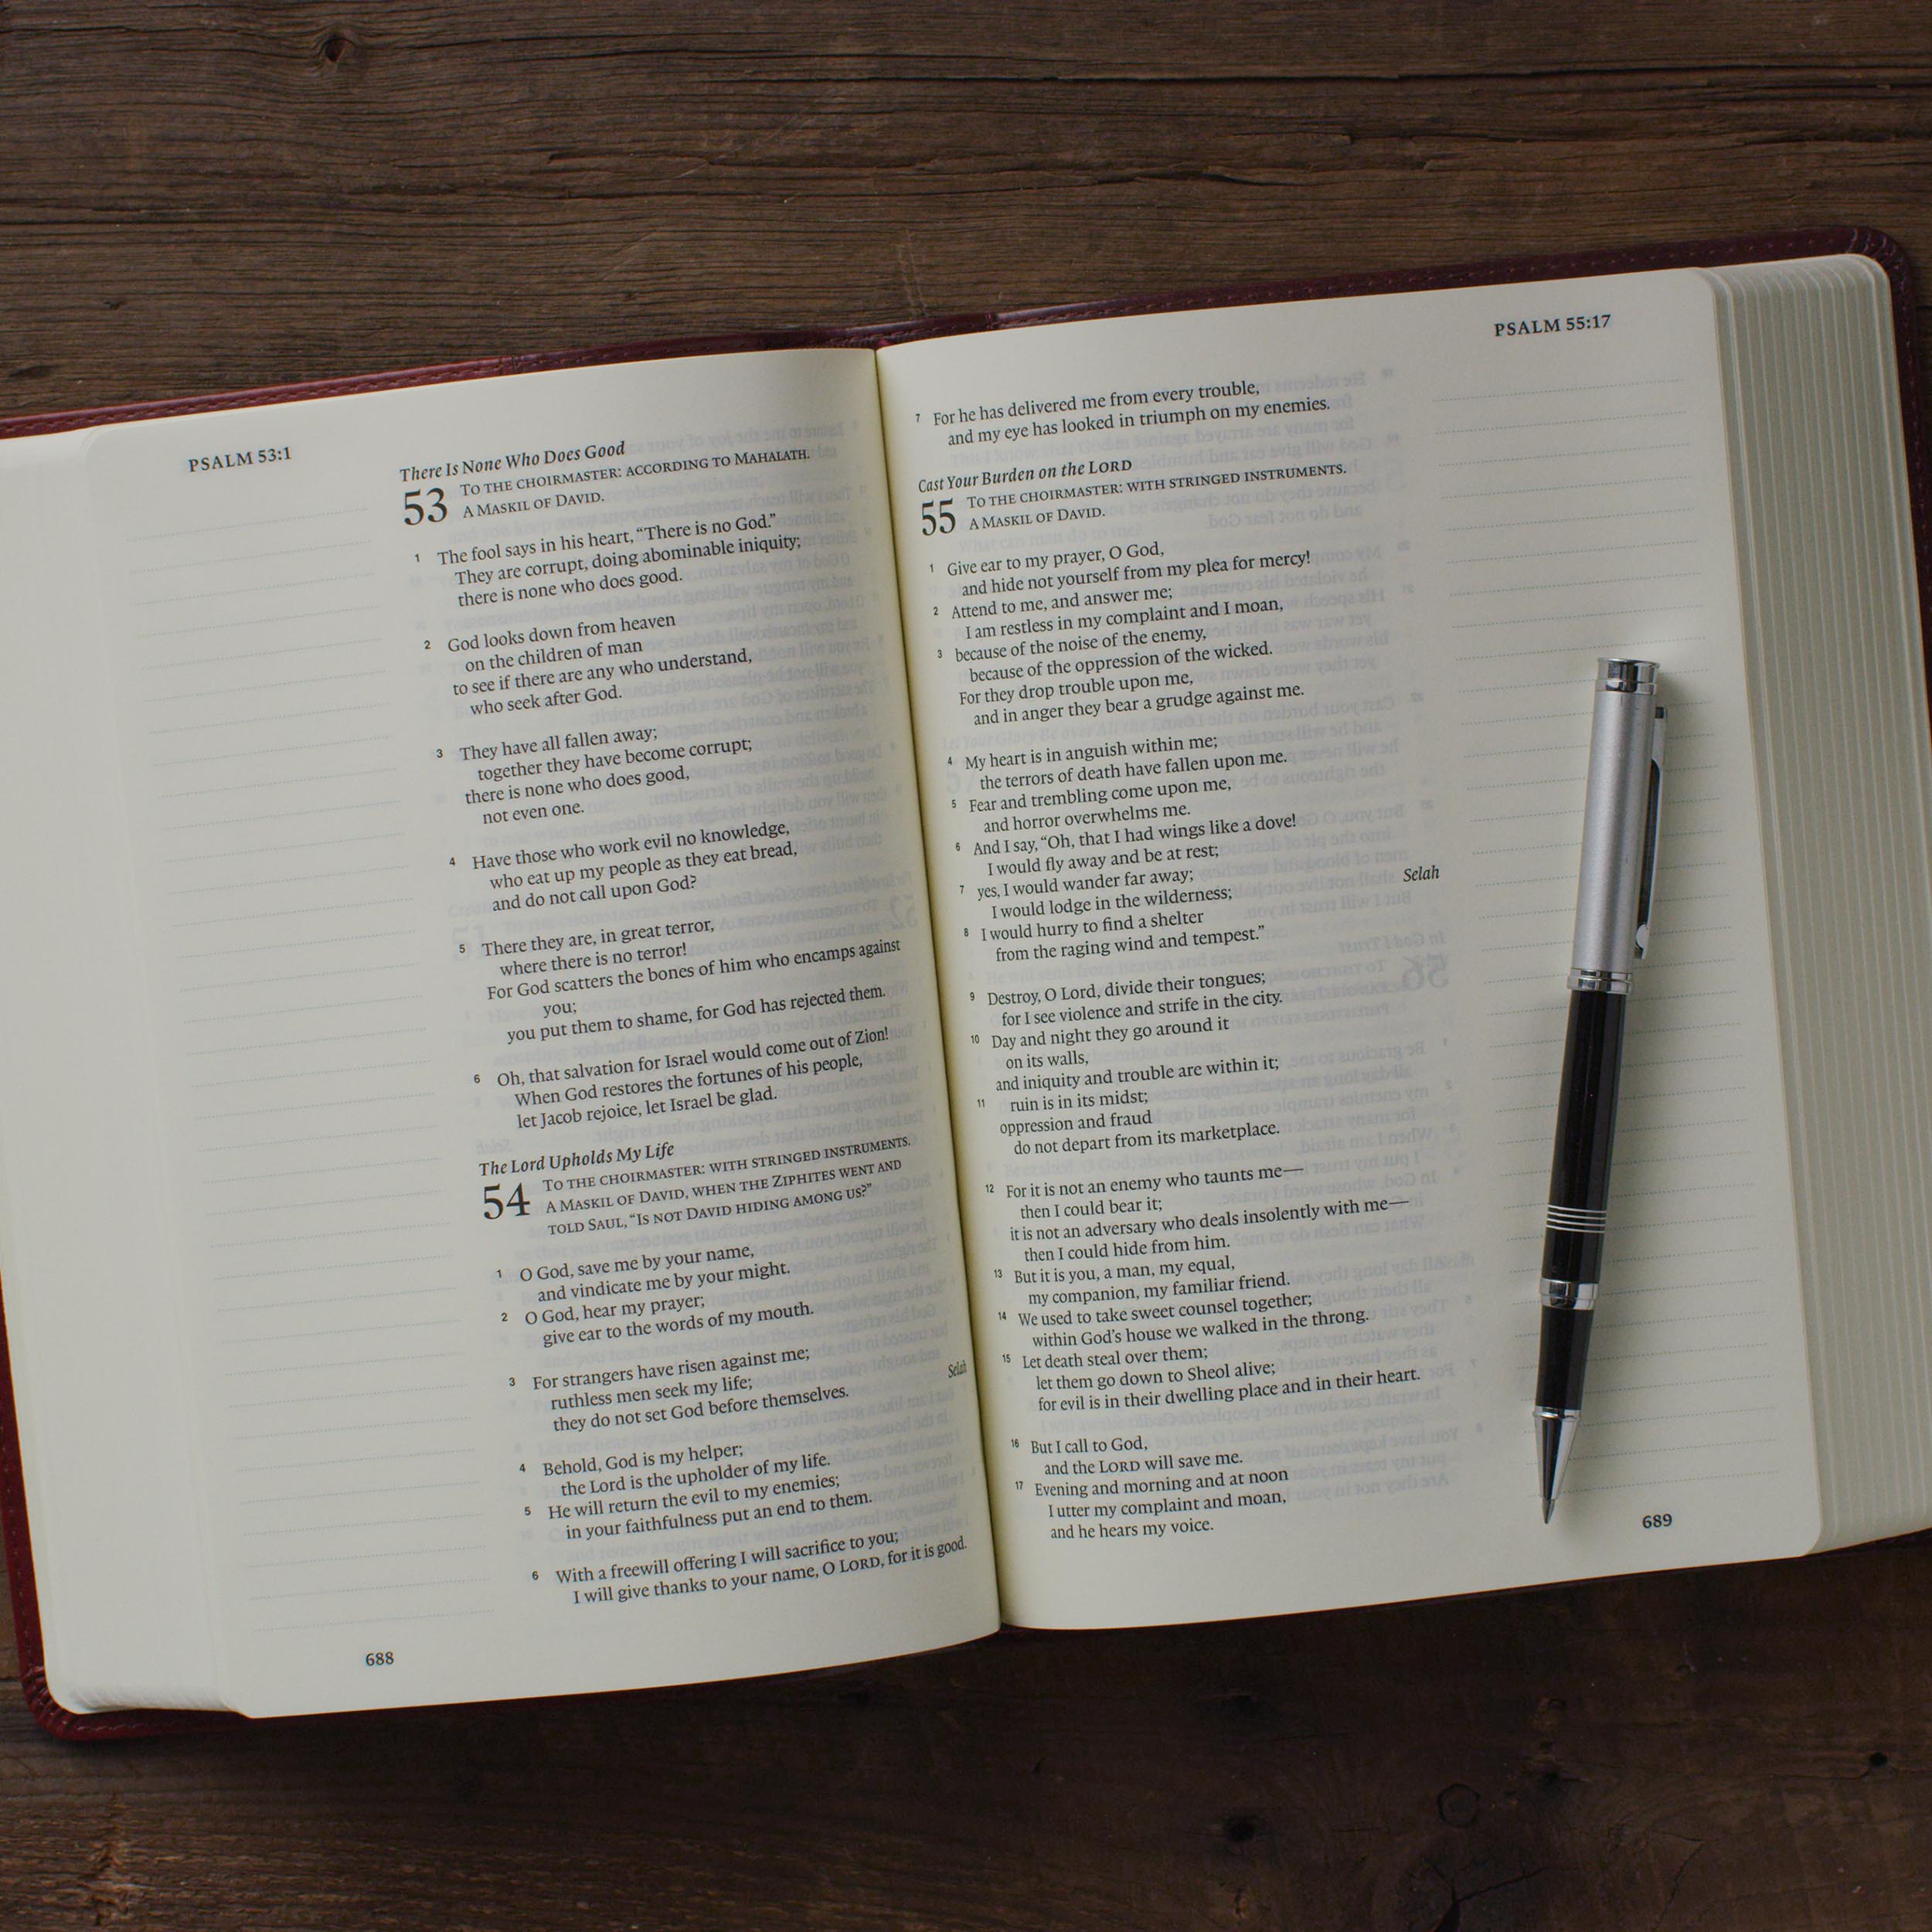 PSALM 53:1
There Is None Who Does Good
53 TO THE CHOIRMASTER: ACCORDING TO MAHALATH.
A MASKIL OF DAVID.
1 The fool says in his heart, “There is no God.”
They are corrupt, doing abominable iniquity;
there is none who does good.
2 God looks down from heaven
on the children of man
to see if there are any who understand,
who seek after God.
3 They have all fallen away;
together they have become corrupt;
there is none who does good,
not even one.
4 Have those who work evil no knowledge,
who eat up my people as they eat bread,
and do not call upon God?
5 There they are, in great terror,
where there is no terror!
For God scatters the bones of him who encamps against
you;
you put them to shame, for God has rejected them.
6 Oh, that salvation for Israel would come out of Zion!
When God restores the fortunes of his people,
let Jacob rejoice, let Israel be glad.
The Lord Upholds My Life
54 TO THE CHOIRMASTER: WITH STRINGED INSTRUMENTS.
A MASKIL OF DAVID, WHEN THE ZIPHITES WENT AND
TOLD SAUL, “IS NOT DAVID HIDING AMONG US?”
1 O God, save me by your name,
and vindicate me by your might.
2 O God, hear my prayer;
give ear to the words of my mouth.
3 For strangers have risen against me;
ruthless men seek my life;
they do not set God before themselves. Selah
4 Behold, God is my helper;
the Lord is the upholder of my life.
5 He will return the evil to my enemies;
in your faithfulness put an end to them.
6 With a freewill offering I will sacrifice to you;
I will give thanks to your name, O LORD, for it is good.
688
PSALM 55:17
7 For he has delivered me from every trouble,
and my eye has looked in triumph on my enemies.
Cast Your Burden on the LORD
55 TO THE CHOIRMASTER: WITH STRINGED INSTRUMENTS.
A MASKIL OF DAVID.
1 Give ear to my prayer, O God,
and hide not yourself from my plea for mercy!
2 Attend to me, and answer me;
I am restless in my complaint and I moan,
3 because of the noise of the enemy,
because of the oppression of the wicked.
For they drop trouble upon me,
and in anger they bear a grudge against me.
4 My heart is in anguish within me;
the terrors of death have fallen upon me.
5 Fear and trembling come upon me,
and horror overwhelms me.
6 And I say, “Oh, that I had wings like a dove!
I would fly away and be at rest;
7 yes, I would wander far away;
I would lodge in the wilderness; Selah
8 I would hurry to find a shelter
from the raging wind and tempest.”
9 Destroy, O Lord, divide their tongues;
for I see violence and strife in the city.
10 Day and night they go around it
on its walls,
and iniquity and trouble are within it;
11 ruin is in its midst;
oppression and fraud
do not depart from its marketplace.
12 For it is not an enemy who taunts me—
then I could bear it;
it is not an adversary who deals insolently with me—
then I could hide from him.
13 But it is you, a man, my equal,
my companion, my familiar friend.
14 We used to take sweet counsel together;
within God’s house we walked in the throng.
15 Let death steal over them;
let them go down to Sheol alive;
for evil is in their dwelling place and in their heart.
16 But I call to God,
and the LORD will save me.
17 Evening and morning and at noon
I utter my complaint and moan,
and he hears my voice.
689